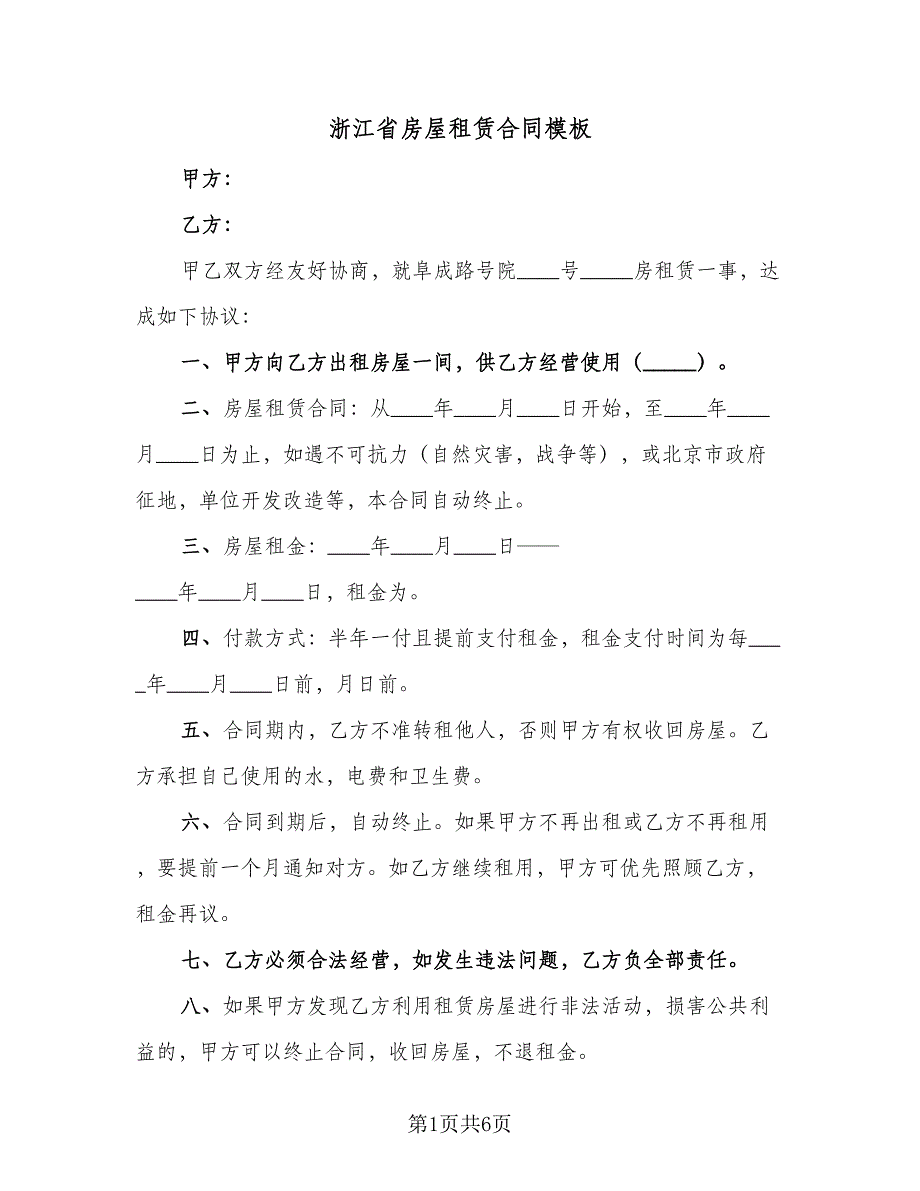 浙江省房屋租赁合同模板
甲方：
乙方：
甲乙双方经友好协商，就阜成路号院____号_____房租赁一事，达
成如下协议：
一、甲方向乙方出租房屋一间，供乙方经营使用（_____）。
二、房屋租赁合同：从____年____月____日开始，至____年____
月____日为止，如遇不可抗力（自然灾害，战争等），或北京市政府
征地，单位开发改造等，本合同自动终止。
三、房屋租金：____年____月____日——
____年____月____日，租金为。
四、付款方式：半年一付且提前支付租金，租金支付时间为每___
_年____月____日前，月日前。
五、合同期内，乙方不准转租他人，否则甲方有权收回房屋。乙
方承担自己使用的水，电费和卫生费。
六、合同到期后，自动终止。如果甲方不再出租或乙方不再租用
，要提前一个月通知对方。如乙方继续租用，甲方可优先照顾乙方，
租金再议。
七、乙方必须合法经营，如发生违法问题，乙方负全部责任。
八、如果甲方发现乙方利用租赁房屋进行非法活动，损害公共利
益的，甲方可以终止合同，收回房屋，不退租金。
第1页共6页